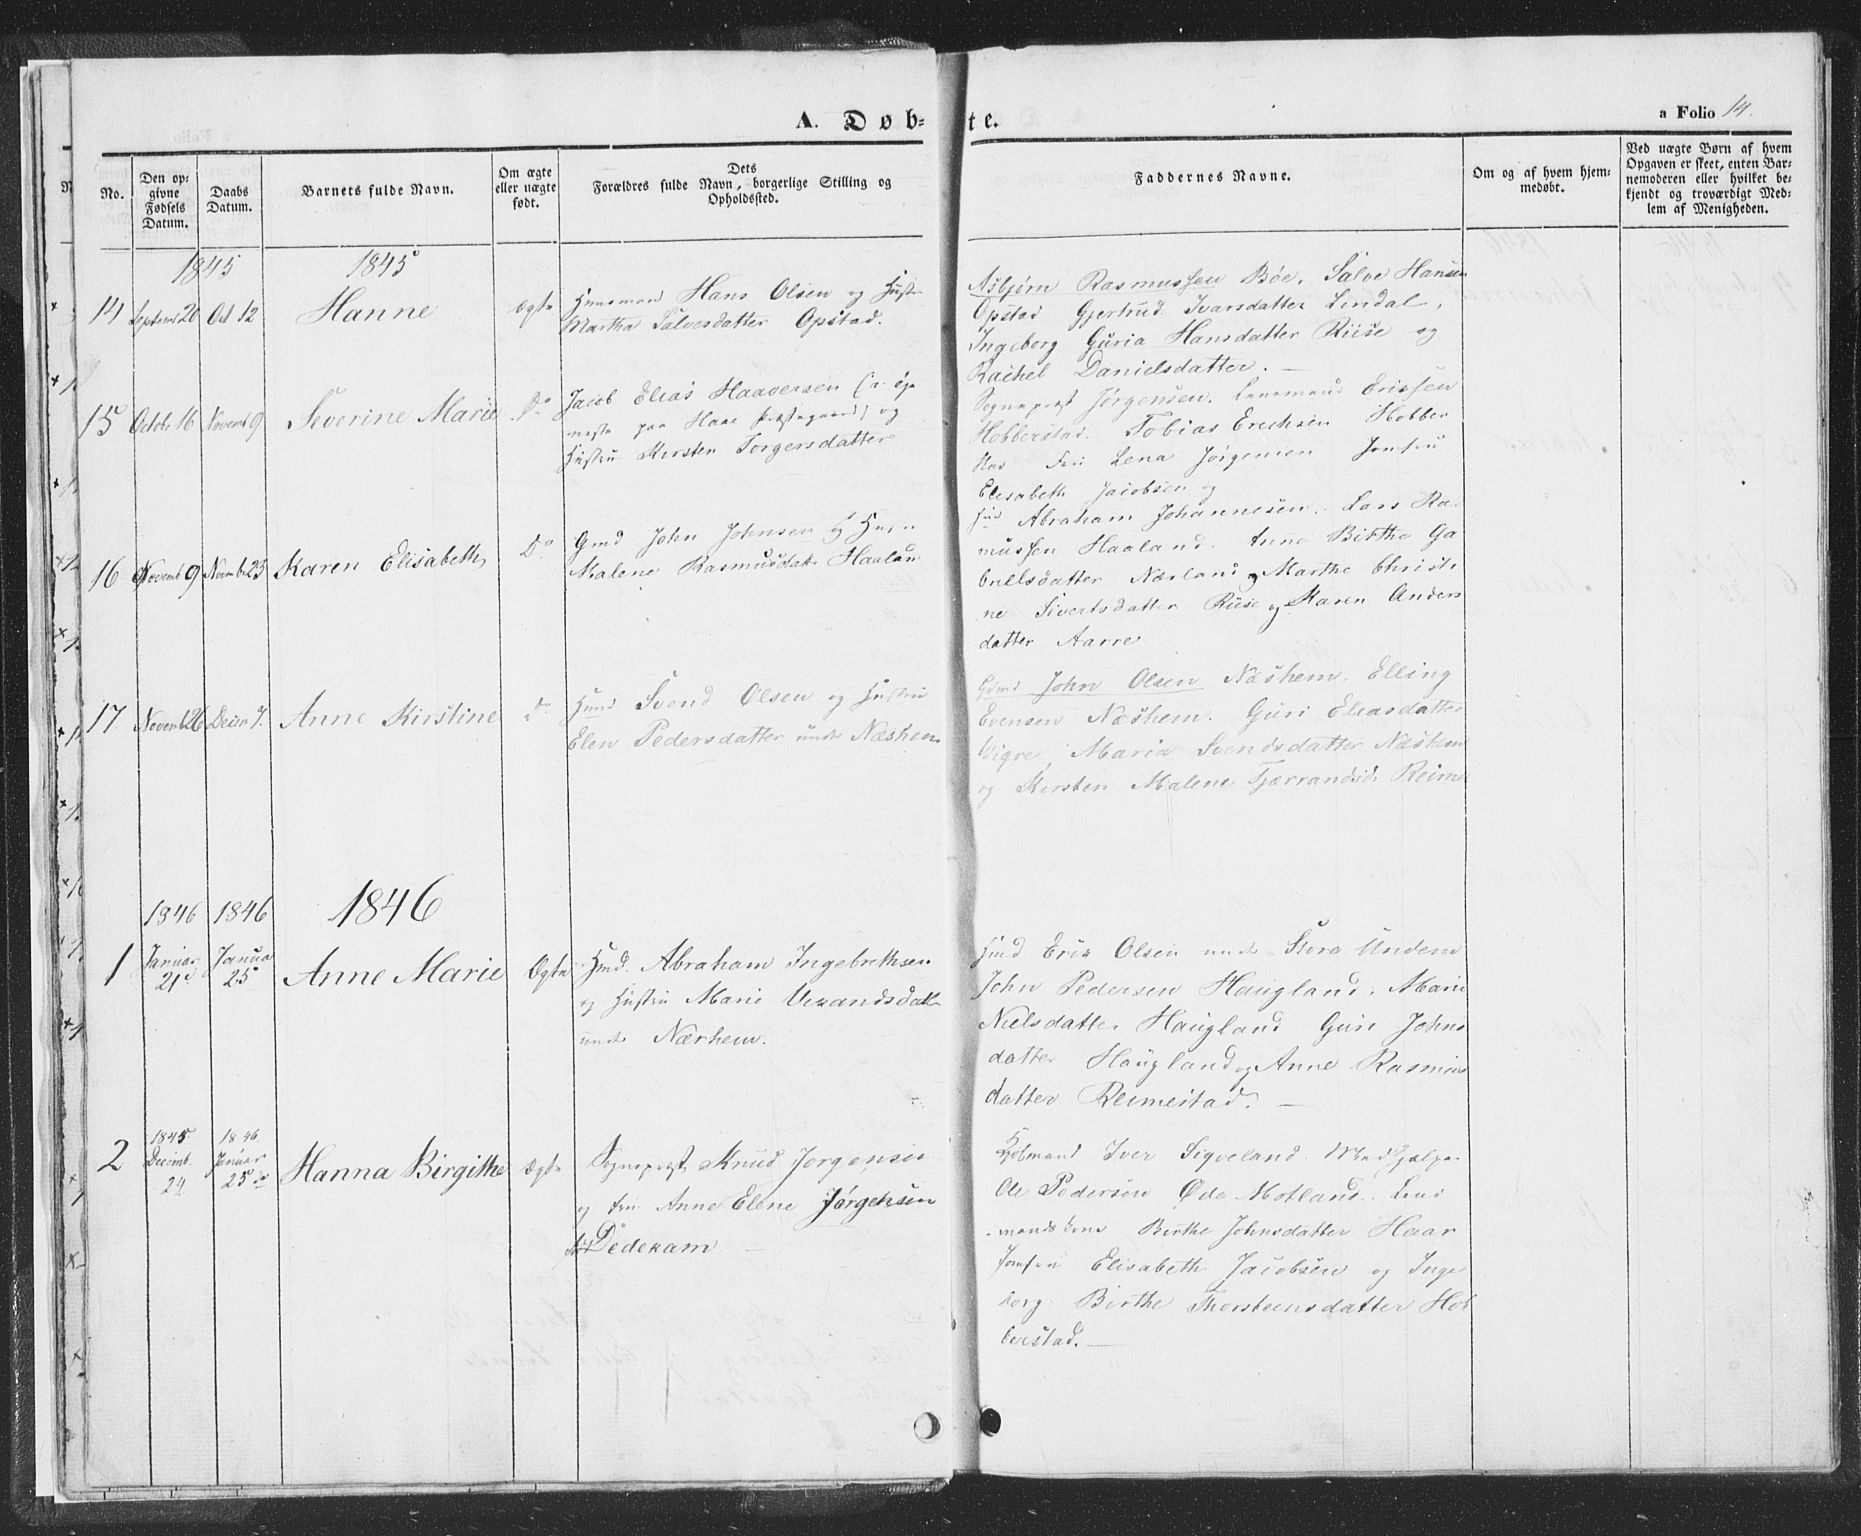 A. Døb-
te.
a Folio 14.
No.
Den op-
givne
Fødsels
Datum.
Daabs
Datum.
Barnets fulde Navn.
Om ægte
eller uægte
født.
Dets
Forældres fulde Navn, borgerlige Stilling og
Opholdssted.
Faddernes Navne.
Om og af hvem hjem-
medøbt.
Ved uægte Børn af hvem
Opgaven er skeet, enten Bar-
nemoderen eller hvilket be-
kjendt og troværdigt Med-
lem af Menigheden.
1845
1845
14
Septemb 20
Oct 12
Hanne
ægte
Huusmand Hans Olsen og Hustr
Martha Salvesdatter Opstad.
Asbjørn Rasmussen Bøe, Salve Hansen
Opstad Gjertrud Ivarsdatter Lendal,
Ingeborg Guria Hansdatter Riise og
Rachel Danielsdatter. —
15
Octob 16
Novemb 9
Severine Marie
Do
Jacob Elias Haaversen
paa Haae Præstegaard) og
Hustru Kirsten Torgersdatter
Sognepræst Jørgensen. Lensmand Ericksen
Hobberstad. Tobias Erichsen Hobber
Lena Jørgensen Jomfru
Elisabeth Jacobsen og
16
Novemb 9
Novemb 23
Karen Elisabeth
Do
Gmd John Johnsen
Malene Rasmusdatr Haalan
Abraham Johannesen. Lars Ra-
mussen Haaland. Anne Birthe Ga
brielsdatter Nærland, Marthe Christi
ne Sivertsdatter Riise og Maren Anders
datter Aarre
17
Novemb 26
Decbr 7.
Anne Kirstine
Do
Huusd Svend Olsen og Hustru
Elen Pedersdatter under Næshem
Gmd John Olsen Næshem, Elling
Evensen Næshem. Guri Eliasdatter
Vigre, Maria Svendsdatter Næshem
og Kirsten Malene Tjærrandsdr Reime
1846
1846
1846
1
Januar
21de
Januar
25
Anne Marie
Ægte
Hmd. Abraham Ingebrethsen
og Hustru Marie
under Nærhem.
Hmd Erik Olsen under Store Undem
John Pedersen Haugland, Marie
Nielsdatter Haugland Guri Johns
datter Haugland og Anne Rasmus
datter Reimestad. —
2
1845
Decemb.
29
1846
Januar
25de
Hanna Birgithe
ægte
Sognepræst Knud Jørgensen
og Fru Anne Elene Jørgensen
Dedekam —
Kjøbmand Iver Sigveland. Medhjelpe-
Ole Pedersen Øde Motland. Lens
mandskone Birthe Johnsdatter Haar
Jomfru Elisabeth Jacobsen og Inge
borg Birthe Thorsteensdatter Hob
berstad. —